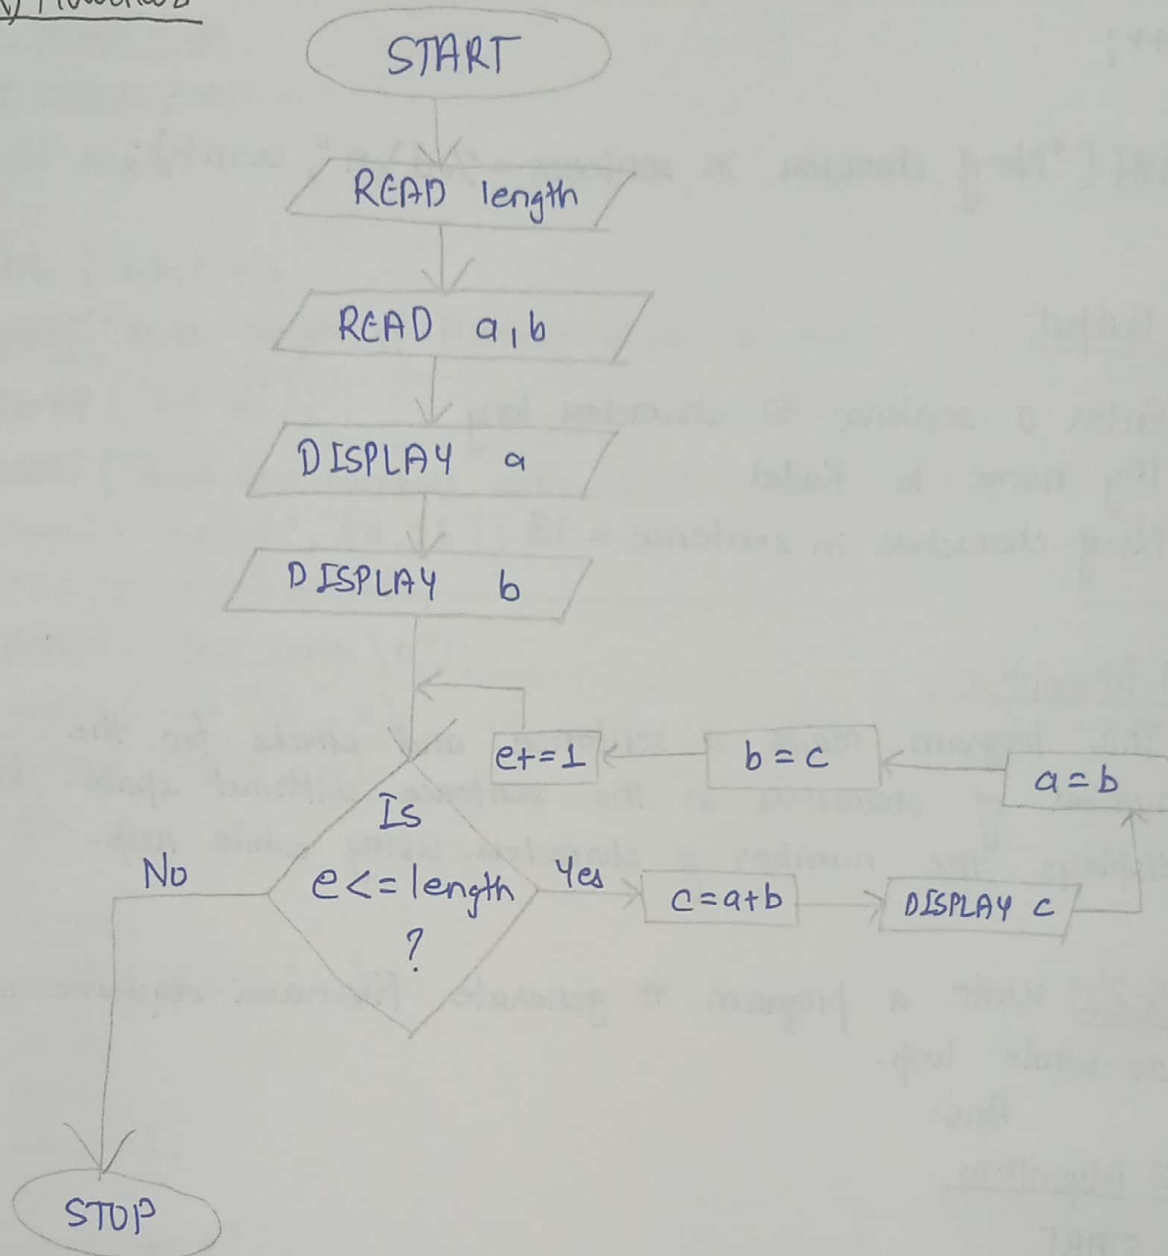 START
READ length
READ a,b
DISPLAY a
DISPLAY b
e+=1
b=c
a=b
Is
e<=length
?
No
Yes
c=a+b
DISPLAY c
STOP